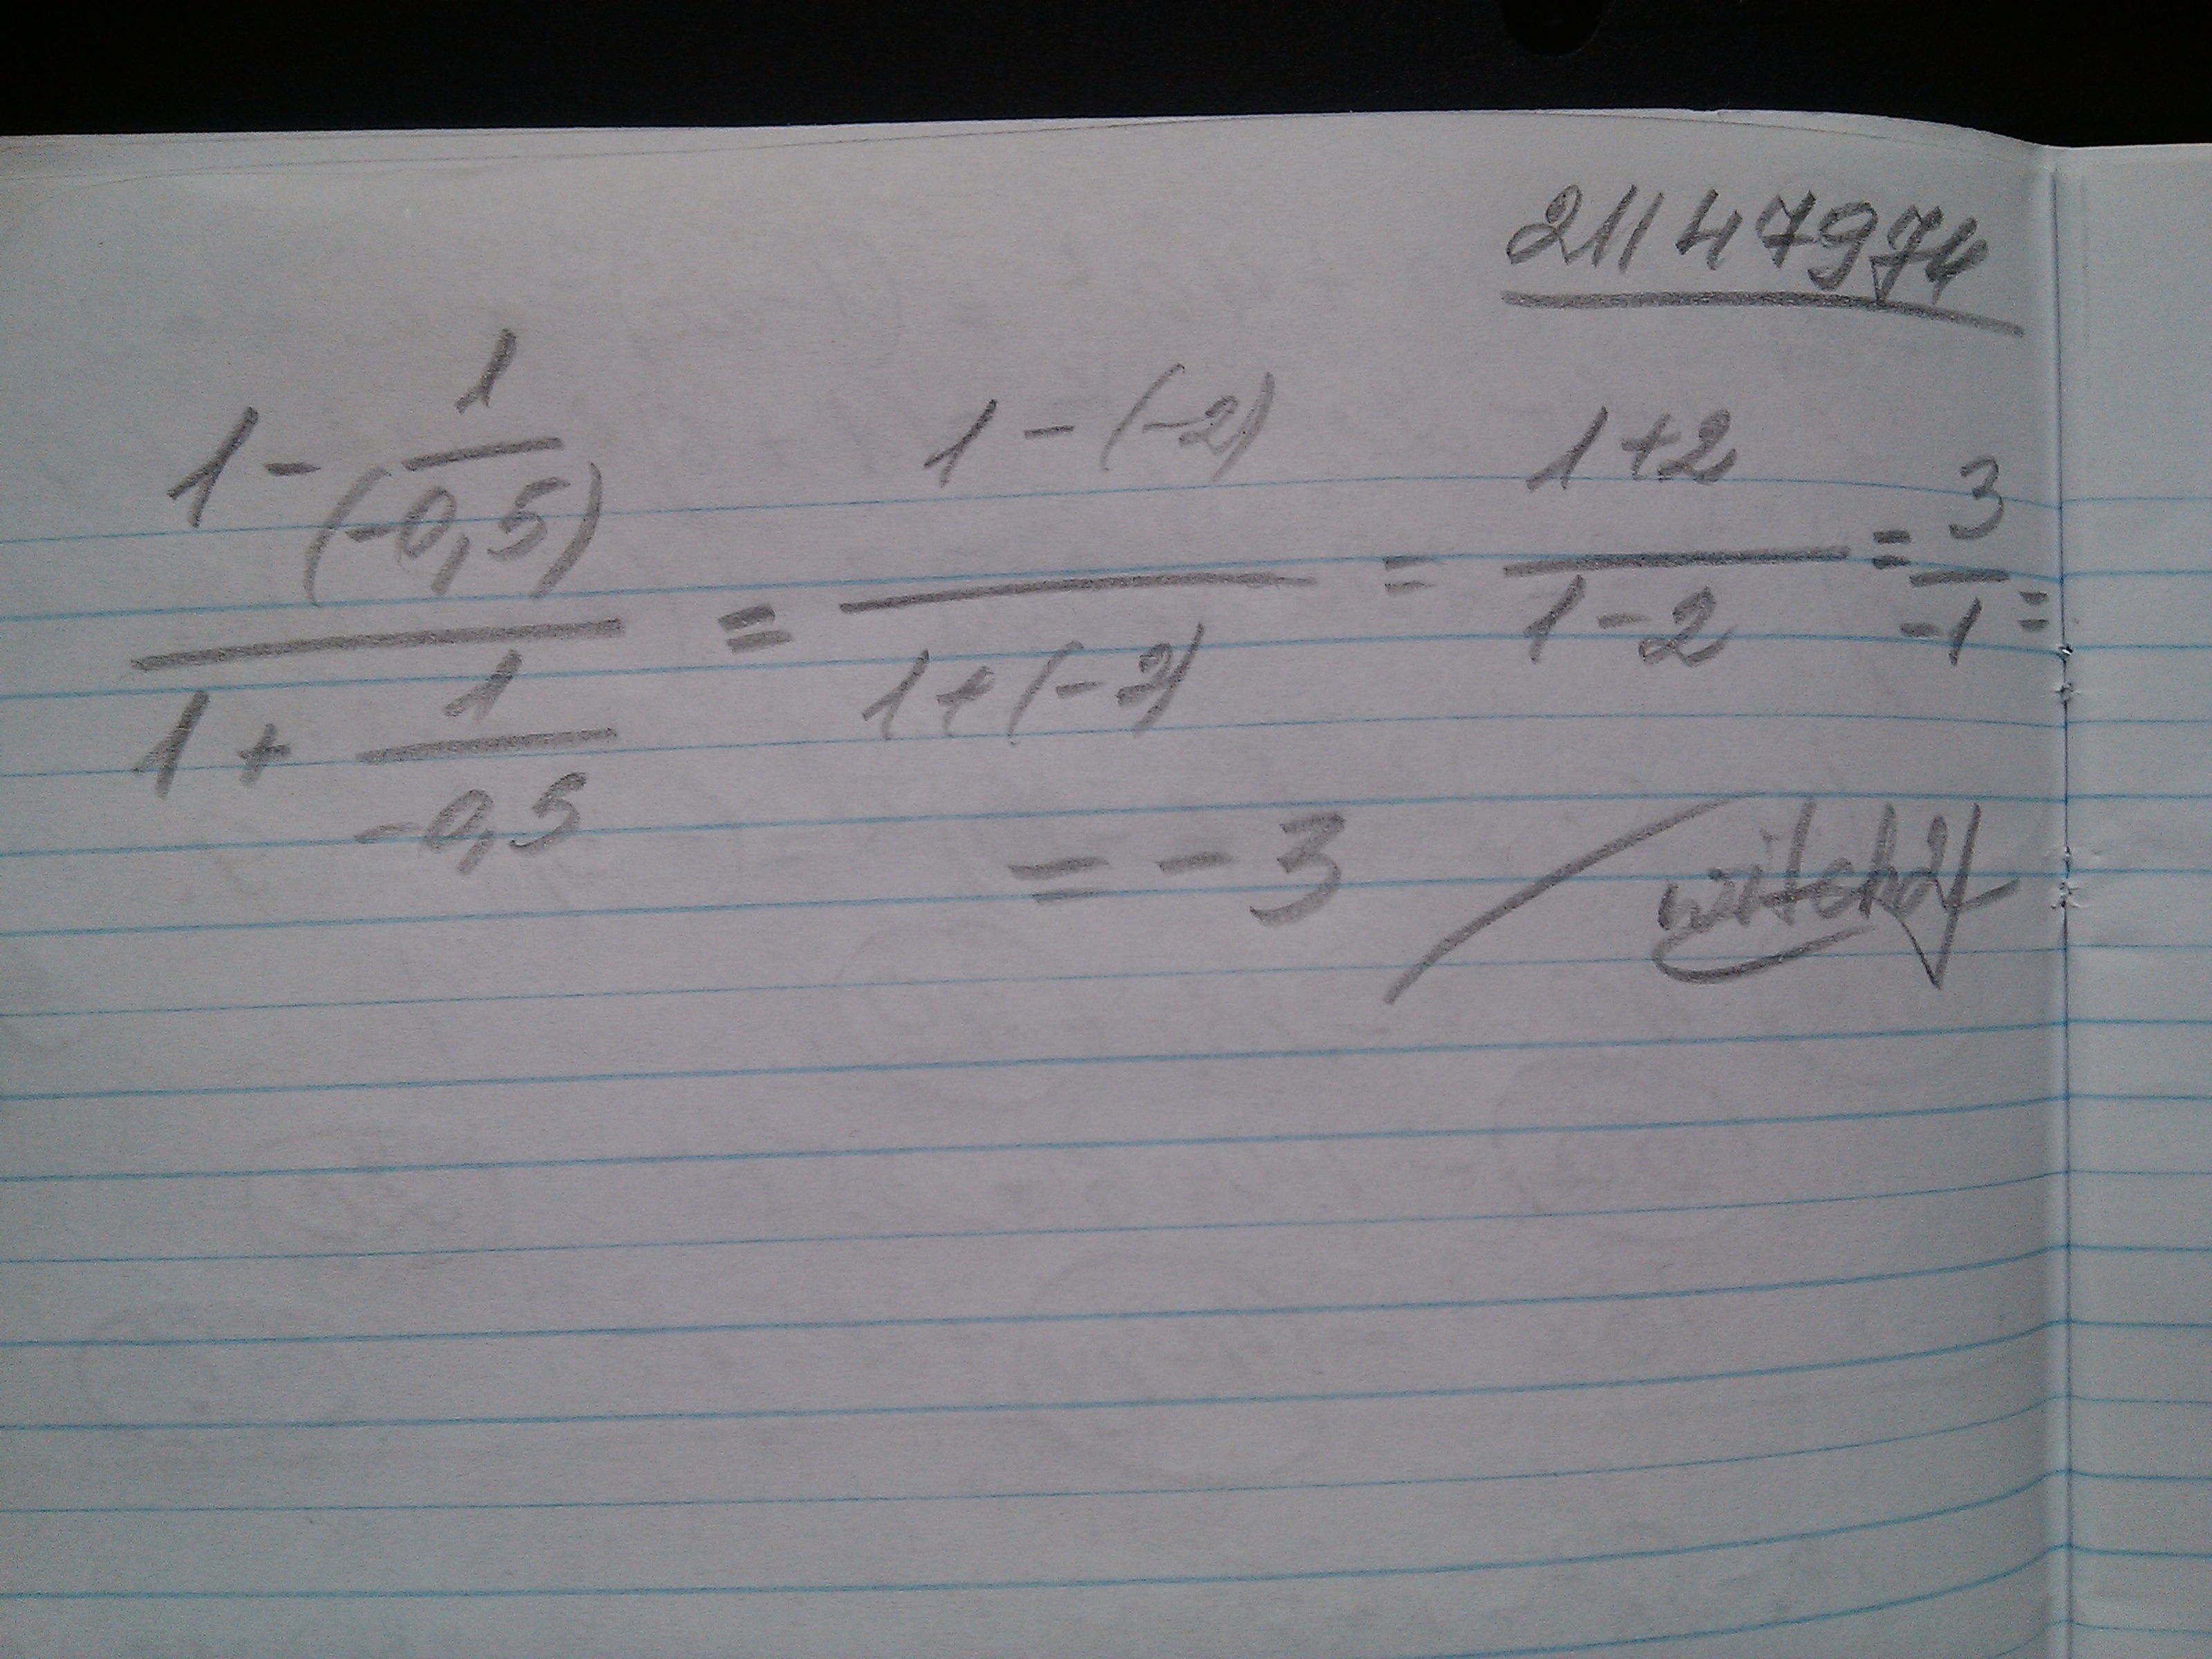 21147974
1 - 1/(-0,5) / 1 + 1/-0,5 = 1 - (-2) / 1 + (-2) = 1 + 2 / 1 - 2 = 3 / -1 =
= - 3
witch24